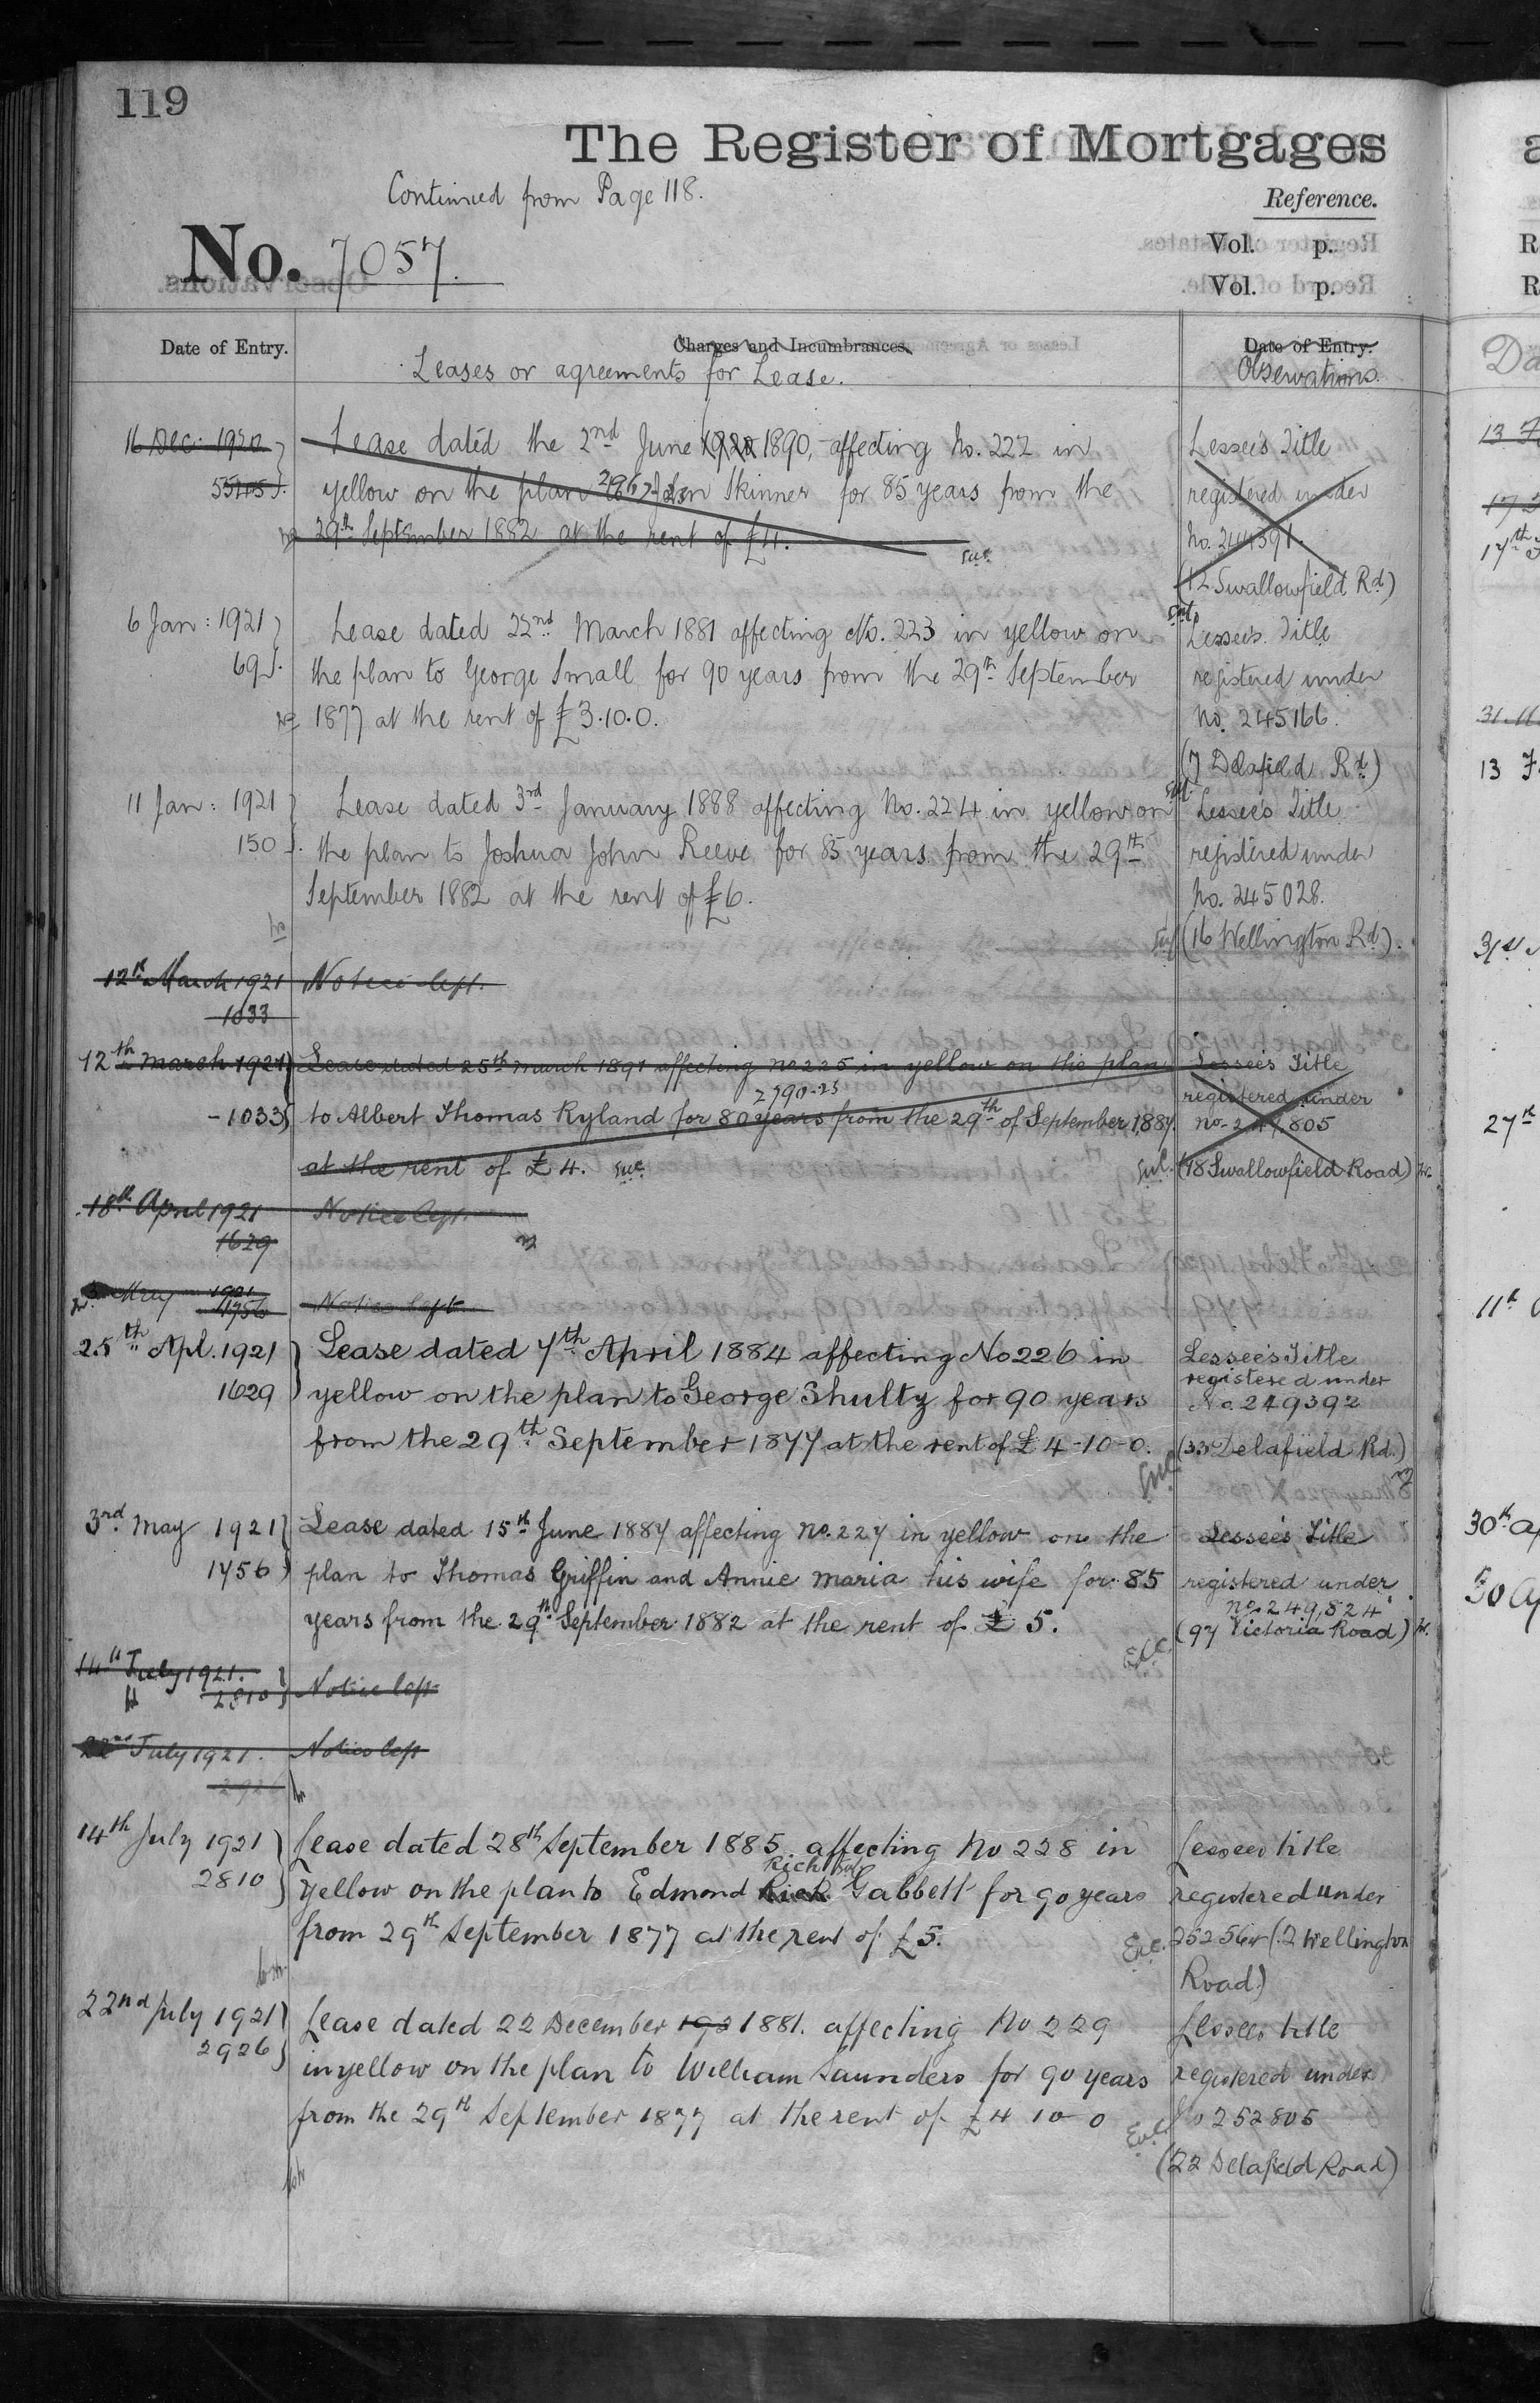 119
The Register of Mortgages
Continued from Page 118.
Reference.
No. 7057.
Vol. p.
Vol. p.
Date of Entry.
Charges and Incumbrances.
Date of Entry.
Leases or agreements for Lease.
Observations.
16 Dec: 1920
Lease dated the 2nd June 1920 1890, affecting No. 222 in
Lessee's Title
yellow on the plan Skinner for 85 years from the
registered under
29th September 1882 at the rent of £4.
No. 244391.
(12 Swallowfield Rd)
6 Jan: 1921
Lease dated 22nd March 1881 affecting No. 223 in yellow on
Lessee's Title
69
the plan to George Small for 90 years from the 29th September
registered under
1877 at the rent of £3.10.0.
No. 245166.
(7 Delafield Rd)
11 Jan: 1921
Lease dated 3rd January 1888 affecting No. 224 in yellow on
Lessee's Title
150
the plan to Joshua John Reeve for 85 years from the 29th
registered under
September 1882 at the rent of £6.
No. 245028.
(16 Wellington Rd).
12th March 1921
Notice left.
1033
12th March 1921
Lease dated 25th March 1891 affecting No 225 in yellow on the plan
Lessee's Title
2790-25
registered under
-1033
to Albert Thomas Ryland for 80 years from the 29th of September 1887.
no. 247,805
at the rent of £4.
(18 Swallowfield Road)
18th April 1921
Notice left.
1629
May 1921
1756
Notice left
25th Apl. 1921
Lease dated 7th April 1884 affecting No 226 in
Lessee's Title
registered under
1629
yellow on the plan to George Shultz for 90 years
No 249392
from the 29th September 1877 at the rent of £4-10-0.
(33 Delafield Rd.)
3rd May 1921
Lease dated 15th June 1887 affecting No. 227 in yellow on the
Lessee's Title
1756
plan to Thomas Griffin and Annie Maria his wife for 85
registered under
no. 249,824
years from the 29th September 1882 at the rent of £5.
(97 Victoria Road)
14th July 1921.
2810
Notice left
22nd July 1921.
Notice left
14th July 1921
Lease dated 28th September 1885 affecting No 228 in
Lessees title
2810
yellow on the plan to Edmond Gabbett for 90 years
registered under
from 29th September 1877 at the rent of £5.
(2 Wellington
Road)
22nd July 1921
Lease dated 22 December 192 1881. affecting No 229
Lessees title
2926
in yellow on the plan to William Saunders for 90 years
registered under
from the 29th September 1877 at the rent of £4 10 0
No 252805
(22 Delafield Road)